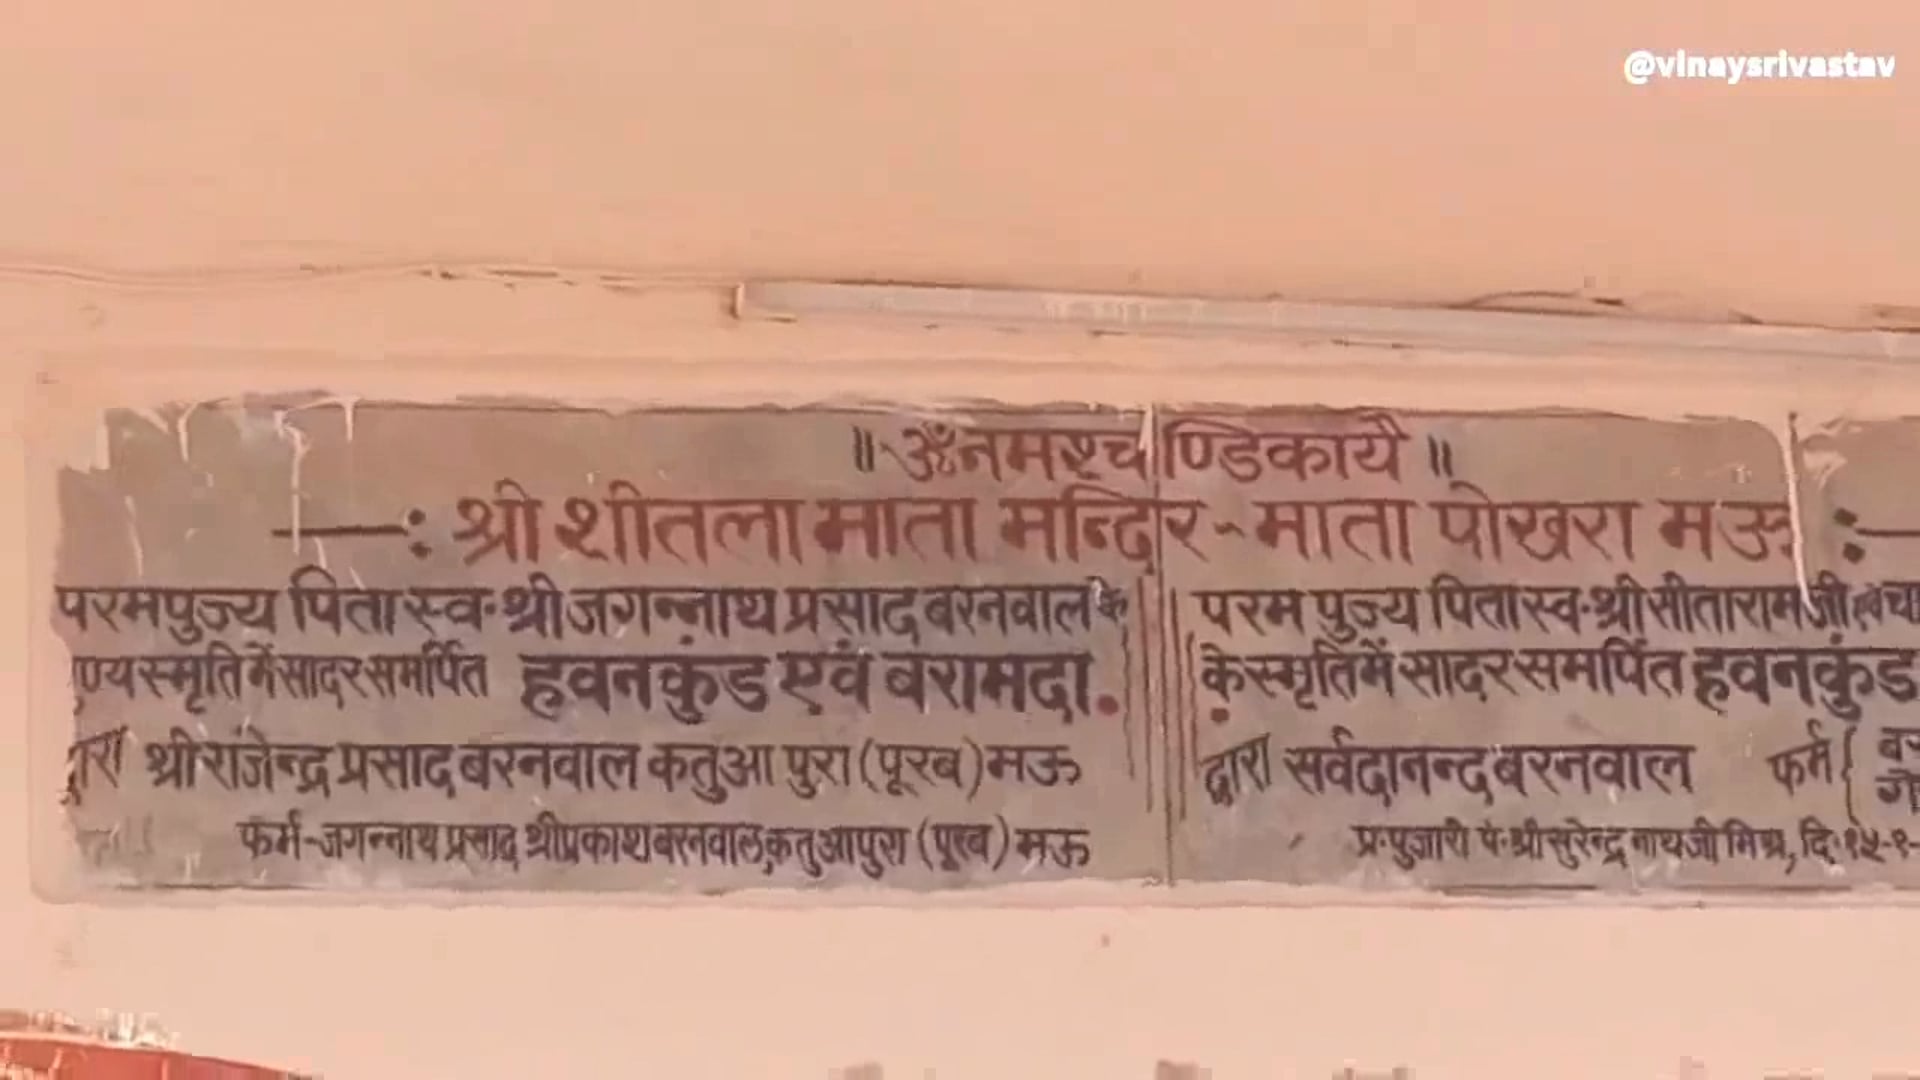 @vinaysrivastav
॥ ॐ नमश्चण्डिकायै ॥
—: श्री शीतला माता मन्दिर - माता पोखरा मऊ :—
परमपुज्य पिता स्व॰ श्री जगन्नाथ प्रसाद बरनवाल के
स्मृति में सादर समर्पित हवनकुंड एवं बरामदा.
द्वारा श्री राजेन्द्र प्रसाद बरनवाल कतुआ पुरा (पूरब) मऊ
फर्म-जगन्नाथ प्रसाद श्रीप्रकाश बरनवाल, कतुआपुरा (पूरब) मऊ
परम पुज्य पिता स्व॰ श्री सीताराम जी
के स्मृति में सादर समर्पित हवनकुंड
द्वारा सर्वदानन्द बरनवाल फर्म {
प्र॰ पुजारी पं॰ श्री सुरेन्द्र नाथ जी मिश्र, दि॰ १५-१-